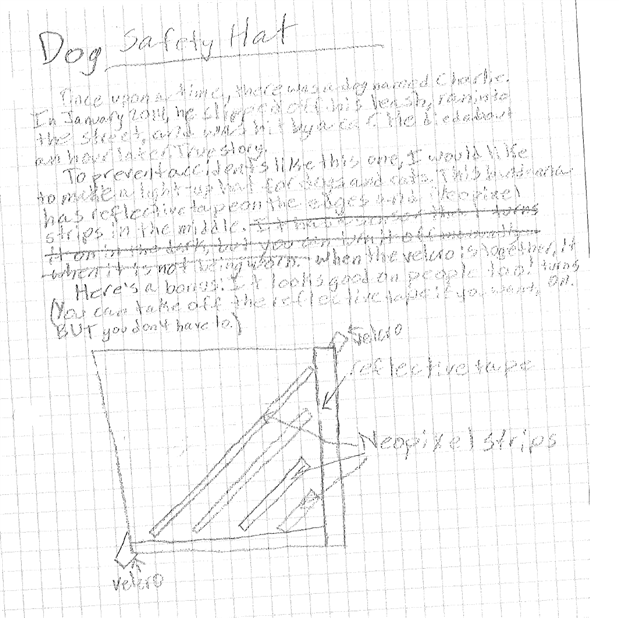 Dog Safety Hat
Once upon a time, there was a dog named Charlie.
In January 2014, he slipped off his leash, ran into
the street, and was hit by a car. He died about
an hour later. True story.
To prevent accidents like this one, I would like
to make a light-up hat for dogs and cats. This
has reflective tape on the edges and Neopixel
strips in the middle. It has a sensor that turns
it on in the dark, but you can turn it off manually
when it is not being worn. When the velcro is together, it
turns on.
Here's a bonus: It looks good on people too!
(You can take off the reflective tape if you want,
BUT you don't have to.)
velcro
reflective tape
Neopixel strips
velcro